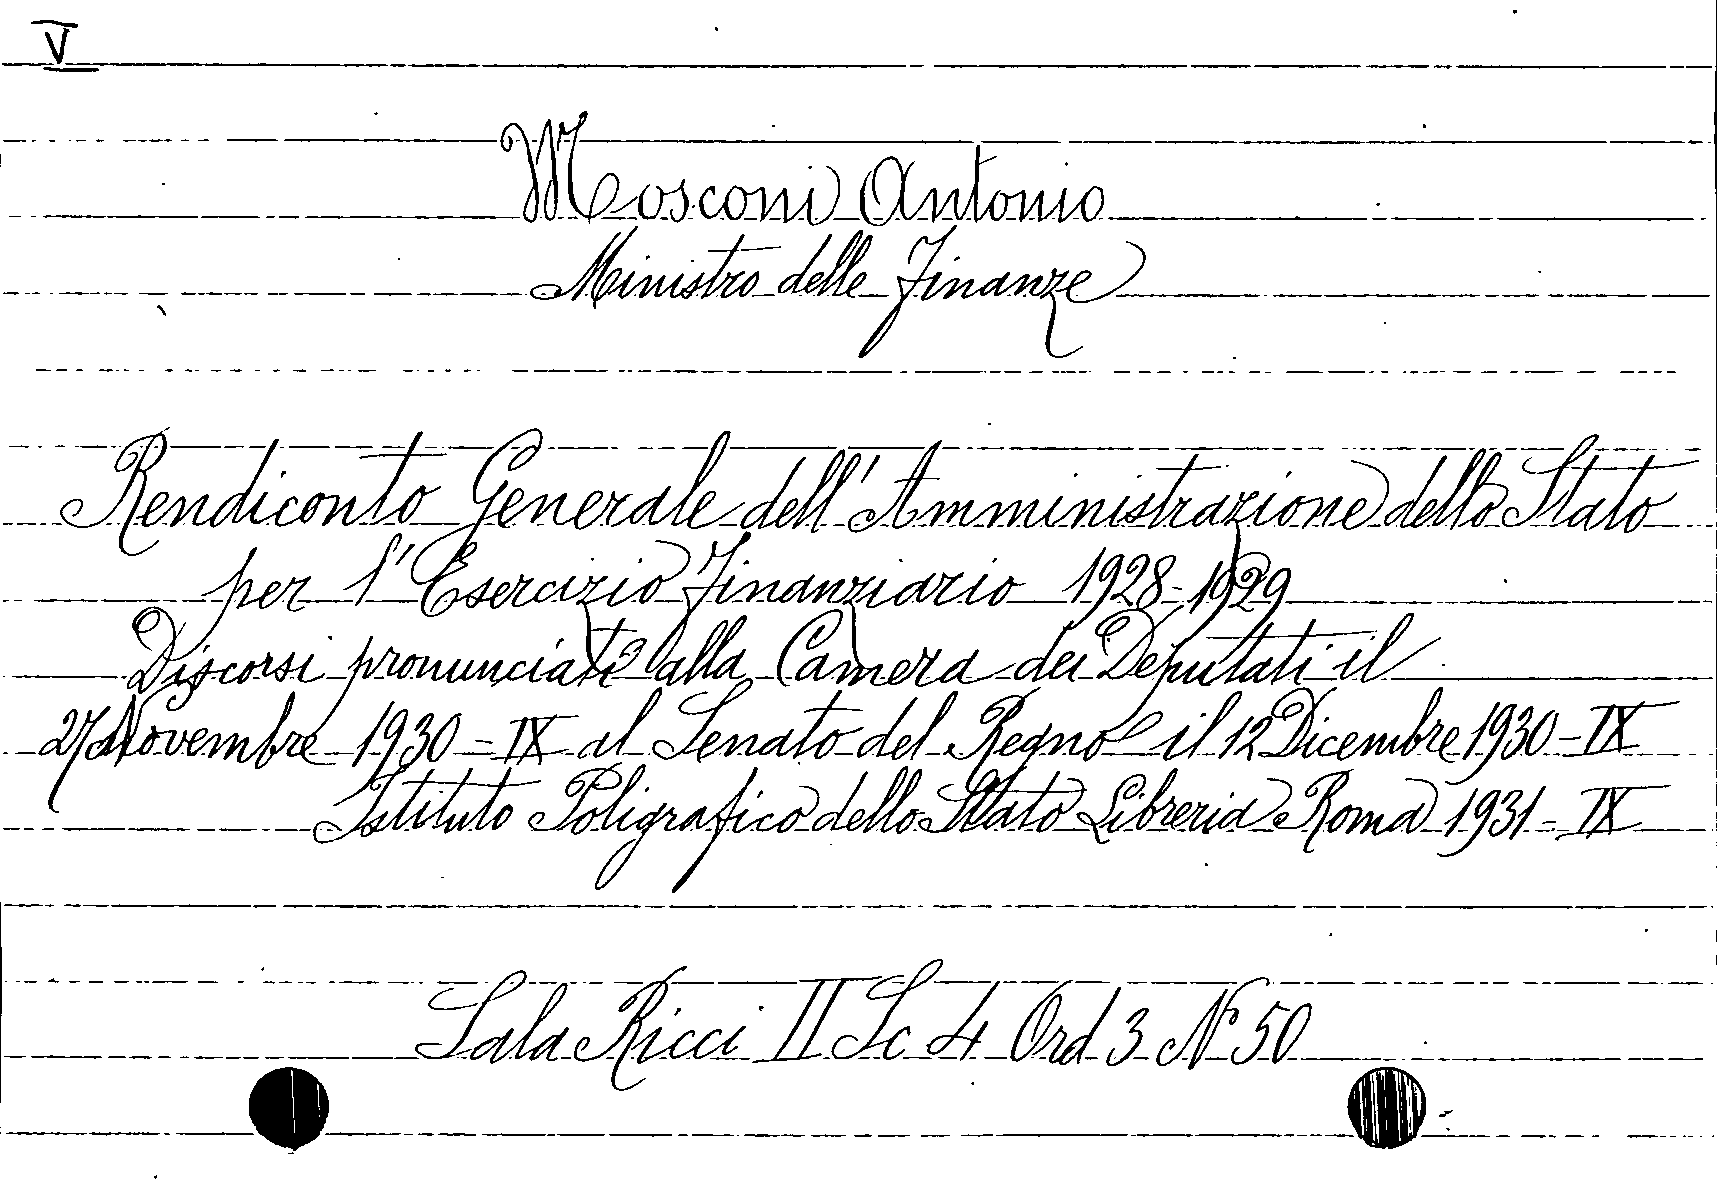 V
Mosconi Antonio
Ministro delle Finanze
Rendiconto Generale dell'Amministrazione dello Stato
per l'Esercizio Finanziario 1928-1929
Discorsi pronunciati alla Camera dei Deputati il
27 Novembre 1930-IX al Senato del Regno il 12 Dicembre 1930-IX
Istituto Poligrafico dello Stato Libreria Roma 1931-IX
Sala Ricci II Sc 4 Ord 3 N° 50